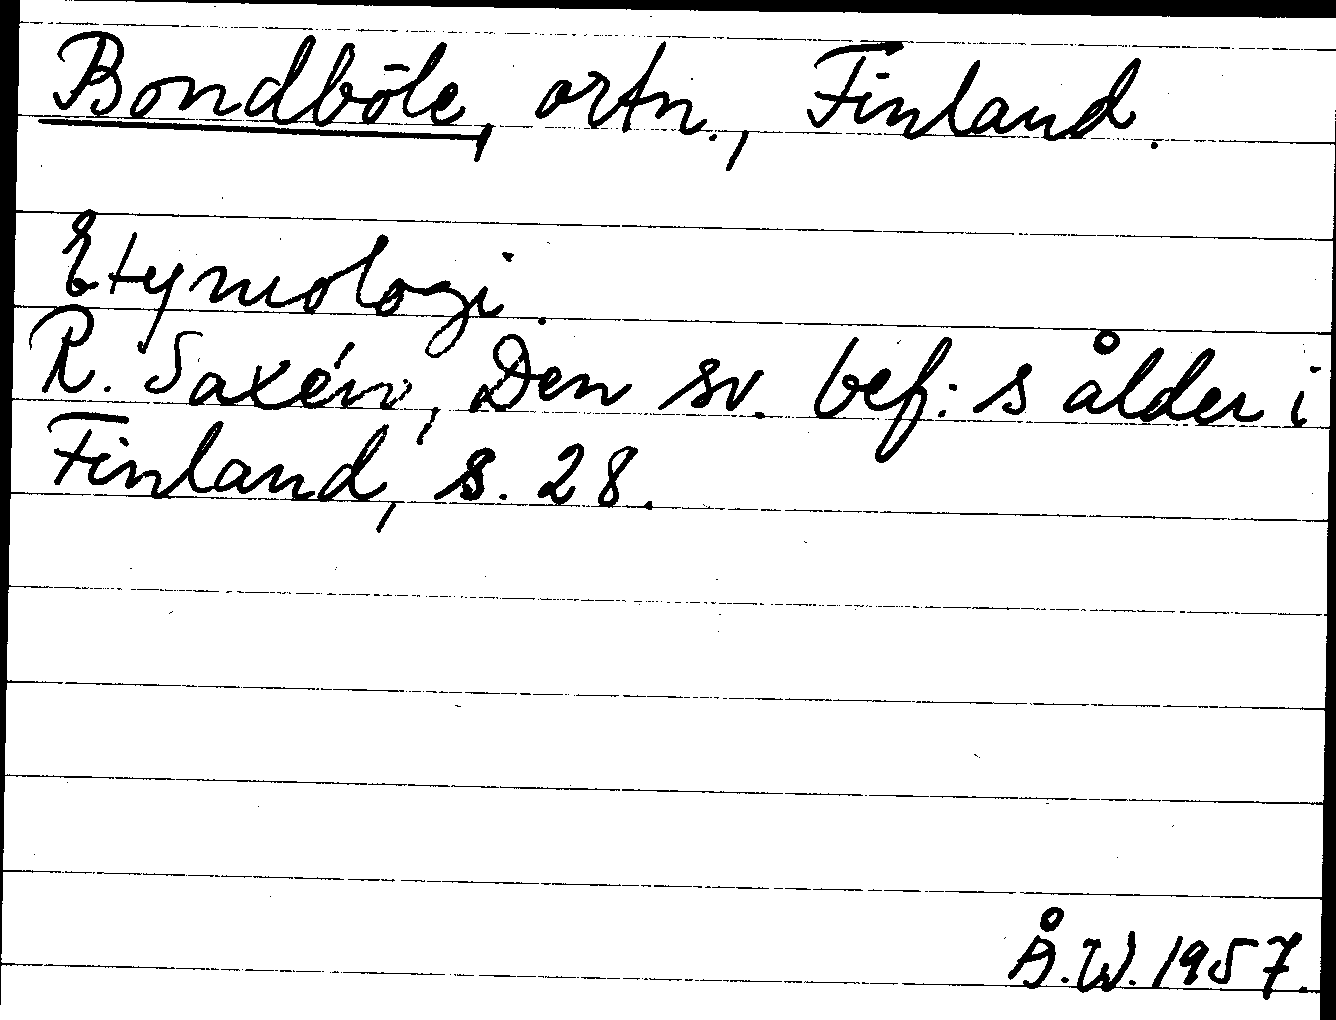 Bondböle, ortn., Finland.
Etymologi.
R. Saxén, Den sv. bef:s ålder i
Finland, s. 28.
Å.W. 1957.